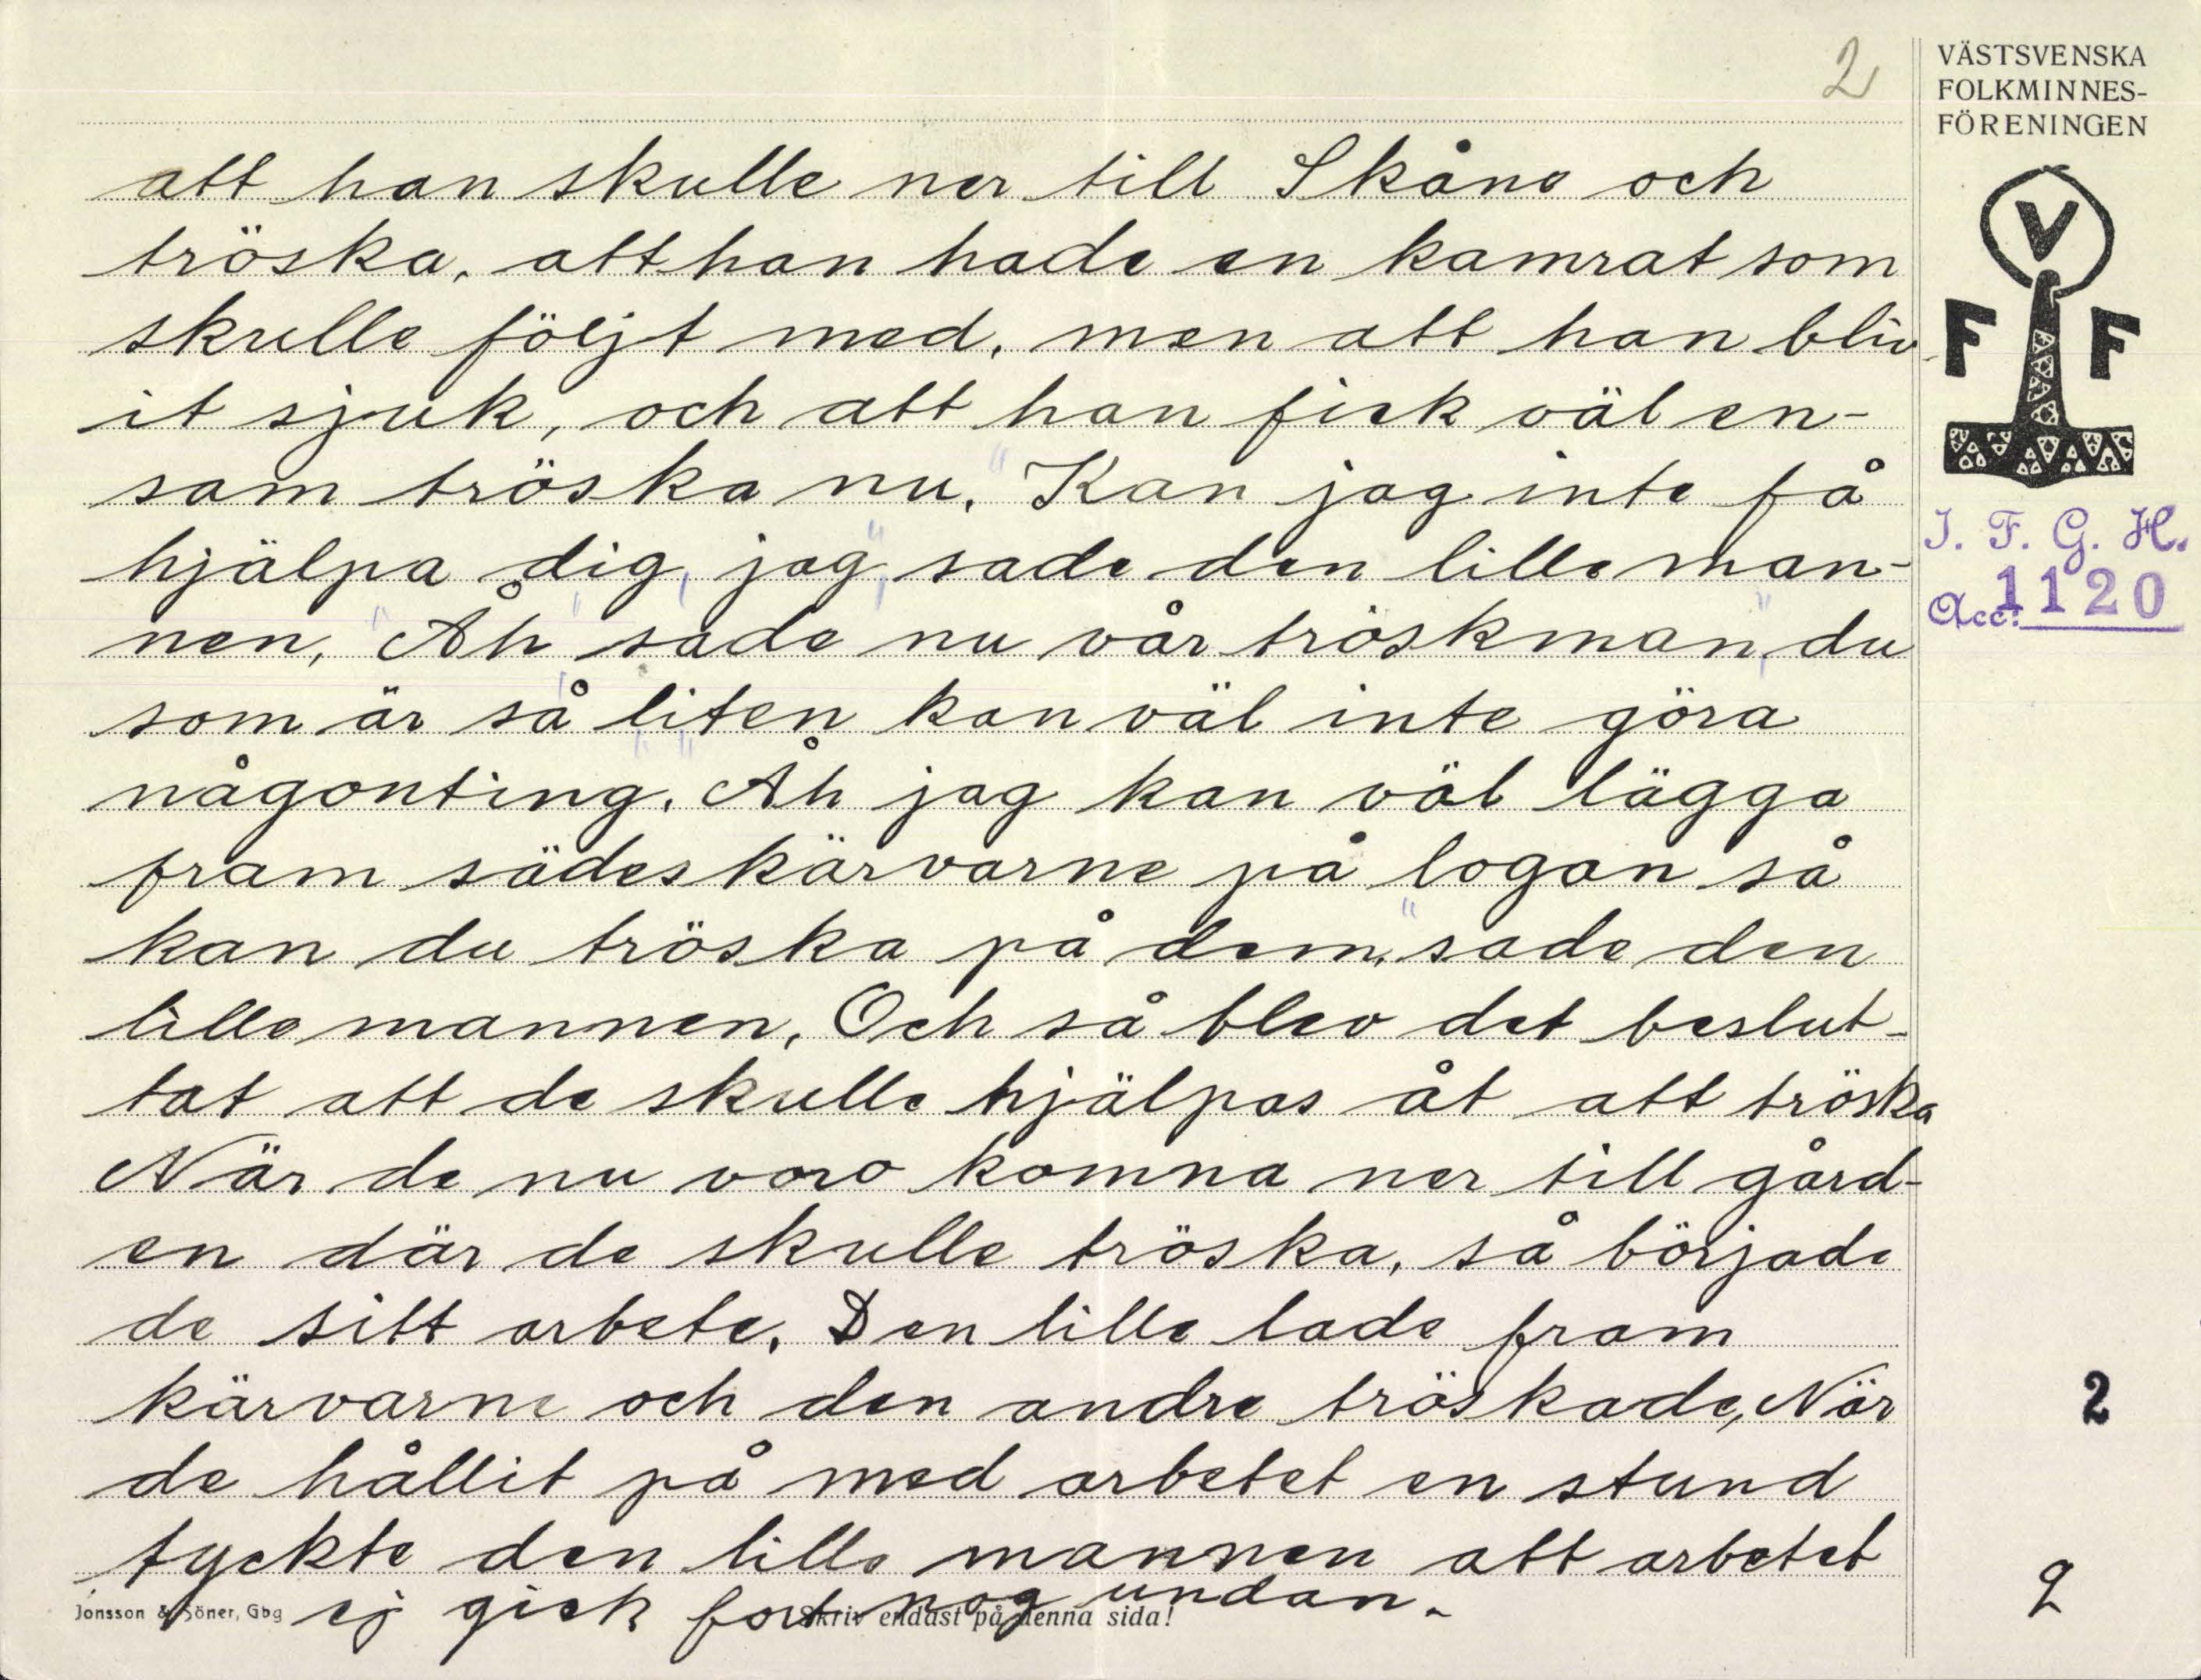 2
VÄSTSVENSKA
FOLKMINNES-
FÖRENINGEN
V
F F
I. F. G. H.
Acc: 1120
att han skulle ner till Skåne och
tröska, att han hade en kamrat som
skulle följt med, men att han bliv-
it sjuk, och att han fick väl en-
sam tröska nu. "Kan jag inte få
hjälpa dig, jag", sade den lille man-
nen, "Åh" sade nu vår tröskman, "du
som är så liten kan väl inte göra
någonting." "Åh jag kan väl lägga
fram sädeskärvarne på logan så
kan du tröska på dem", sade den
lille mannen, Och så blev det beslut-
tat att de skulle hjälpas åt att tröska
När de nu voro komna ner till gård-
en där de skulle tröska, så började
de sitt arbete. Den lille lade fram
kärvarne och den andre tröskade, När
de hållit på med arbetet en stund
tyckte den lille mannen att arbetet
ej gick fort nog undan.
2
2
Jonsson & Söner, Gbg
Skriv endast på denna sida!